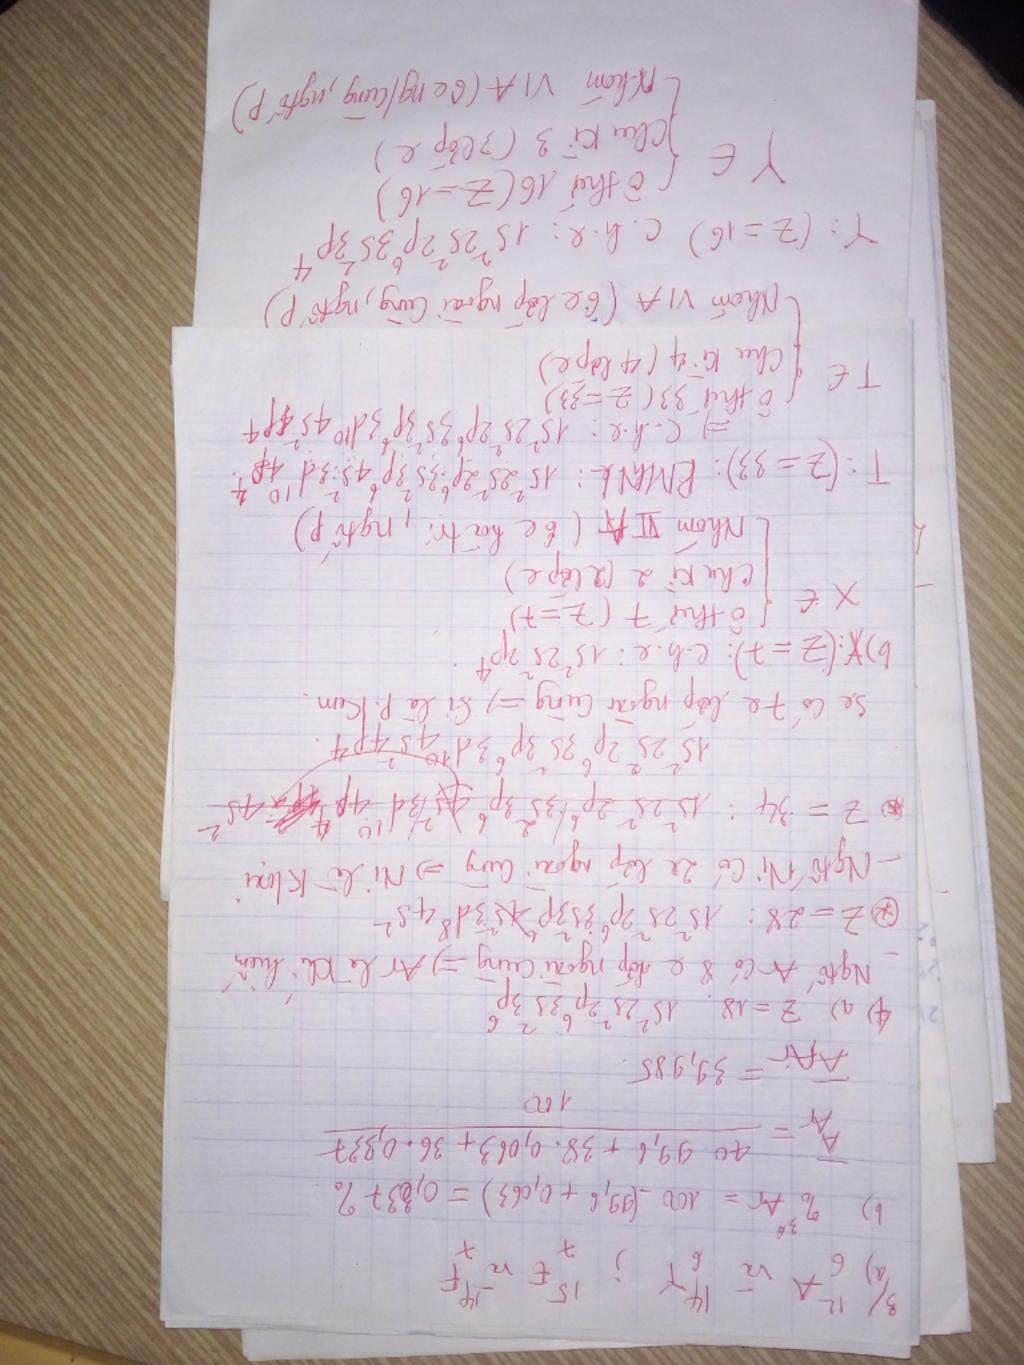 3/a) ¹²₆A và ¹⁴₆Y ; ¹⁵₇E và ¹⁴₇F
b) % ³⁶Ar = 100 - (99,6 + 0,063) = 0,337 %
A̅ Ar = (40.99,6 + 38.0,063 + 36.0,337) / 100
A̅ Ar = 39,985.
4) a) Z = 18: 1s² 2s² 2p⁶ 3s² 3p⁶
- Ngtố Ar có 8 e lớp ngoài cùng => Ar là khí hiếm
Z = 28: 1s² 2s² 2p⁶ 3s² 3p⁶ 3d⁸ 4s²
- Ngtố Ni có 2e lớp ngoài cùng => Ni là K loại
Z = 34: 1s² 2s² 2p⁶ 3s² 3p⁶ 4s² 3d¹⁰ 4p⁴ 4s²
1s² 2s² 2p⁶ 3s² 3p⁶ 3d¹⁰ 4s² 4p⁴.
Se có 7e lớp ngoài cùng => là p. kim.
b) X: (Z = 7): c.h.e: 1s² 2s² 2p⁴.
X ∈ { ô thứ 7 (Z = 7)
Chu kì 2 (2 lớp e)
Nhóm VI A (6e hoá trị, ngtố p)
T: (Z = 33): PMNL: 1s² 2s² 2p⁶ 3s² 3p⁶ 4s² 3d¹⁰ 4p⁴.
=> C.h.e: 1s² 2s² 2p⁶ 3s² 3p⁶ 3d¹⁰ 4s² 4p⁴
T ∈ { ô thứ 33 (Z = 33)
Chu kì 4 (4 lớp e)
Nhóm VI A (6e lớp ngoài cùng, ngtố p)
Y: (Z = 16) C.h.e: 1s² 2s² 2p⁶ 3s² 3p⁴
Y ∈ { ô thứ 16 (Z = 16)
Chu kì 3 (3 lớp e)
Nhóm VI A (6e ng/cùng, ngtố p)